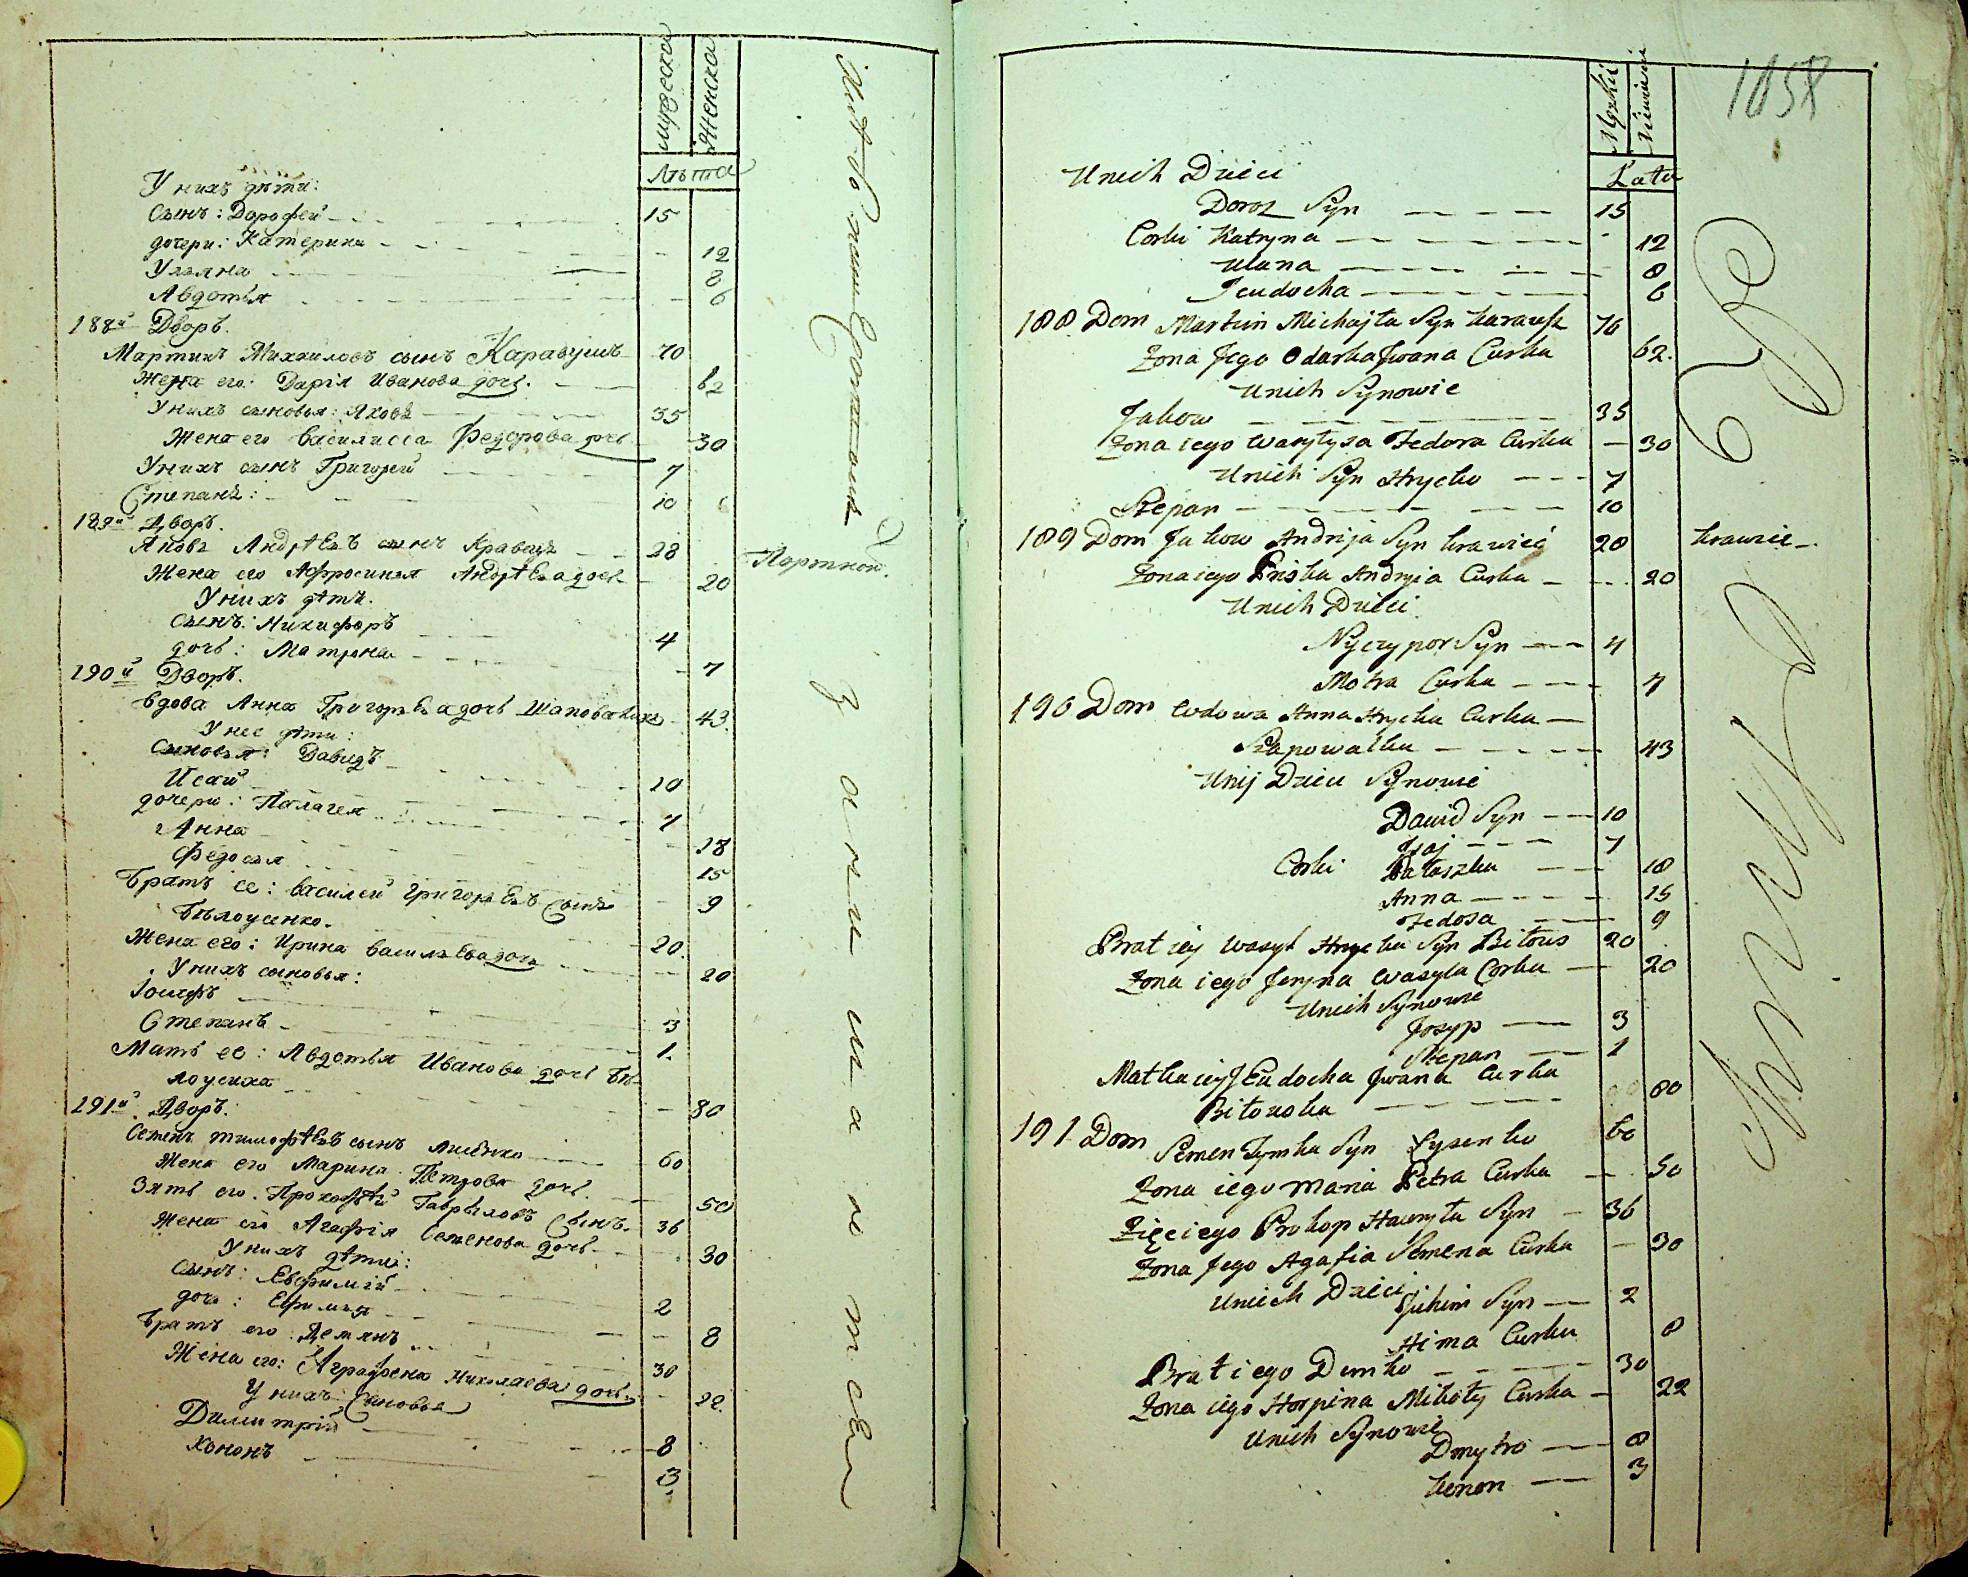 мужеска
Женска
Лѣта
У нихъ дѣти:
сынъ: Дорофей 15
дочери: Катерина 12
Уляна 8
Авдотья 6
188й Дворъ.
Мартинъ Михайловъ сынъ Каравушъ 70
Жена его: Дарія Иванова дочь. 62
У нихъ сыновья: Яковъ 35
Жена его Василисса Федорова дочь 30
У нихъ сынъ Григорей 7
Степанъ: 10
189й Дворъ.
Яковъ Андрѣевъ сынъ Кравецъ 28 Портной.
Жена его Афросиния Андрѣева дочь 20
У нихъ дѣти.
сынъ: Никифоръ 4
дочь: Матрона 7
190й Дворъ.
Вдова Анна Григорьева дочь Шаповалиха 43.
У нее дѣти:
Сыновья: Давидъ 10
Исай 7
дочери: Палагея 18
Анна 15
Федосья 9
Братъ ее: Василей Григорьевъ Сынъ
Бѣлоусенко. 20.
Жена его: Ирина Васильева дочь 20
У нихъ сыновья:
Іосифъ 3
Степанъ 1.
Мать ее: Авдотья Иванова дочь Бѣ-
лоусиха 80
191й Дворъ.
Семенъ Тимофѣевъ сынъ Лисенко 60
Жена его Марина Петрова дочь. 50
Зять его. Прокофѣй Гаврыловъ Сынъ. 36
Жена его Агафія Семенова дочь. 30
У нихъ дѣти:
Сынъ: Евфимій 2
дочь: Ефимия 8
Братъ его Демянъ 30
Жена его: Аграфена Николаева дочь. 22.
У нихъ: Сыновья
Дмитрій 8
Кононъ 3
1058
Męzkii
Lata
Unich Dzieci
Dorosz Syn 15
Corki Katryna 12
Ulana 8
Jeudocha 6
188 Dom Martin Michajła Syn Karausz 70
Zona Jego Odarka Jwana Curka 62.
Unich Synowie
Jakow 35
Zona iego Wasyłysa Fedora Curka 30
Unich Syn Hrycko 7
Stepan 10
189 Dom Jakow Andrija Syn Krawieć 28 Krawiec
Zona iego Priska Andryia Curka 20
Unich Dzieci
Nyczypor Syn 4
Motra Curka 7
190 Dom Wdowa Anna Hrycka Curka
Szapowałka 43
Unij Dzieci Synowie
Dawid Syn 10
Jsaj 7
Corki Pałaszka 18
Anna 15
Fedosa 9
Brat iey Wasyl Hrycka Syn Biłous 20
Zona iego Jeryna Wasyla Corka 20
Unich Synowie
Josyp 3
Stepan 1
Matka iey Jeudocha Jwana Curka
Biłouska 80
191 Dom Semen Tymka Syn Łysenko 60
Zona iego Maria Petra Curka 50
Zięć iego Prokop Hawryła Syn 36
Zona Jego Agafia Semena Curka 30
Unich Dzieci Juhim Syn 2
Hima Curka 8
Brat iego Demko 30
Zona iego Horpina Mikoły Curka 22
Unich Synowie
Dmytro 8
Konon 3